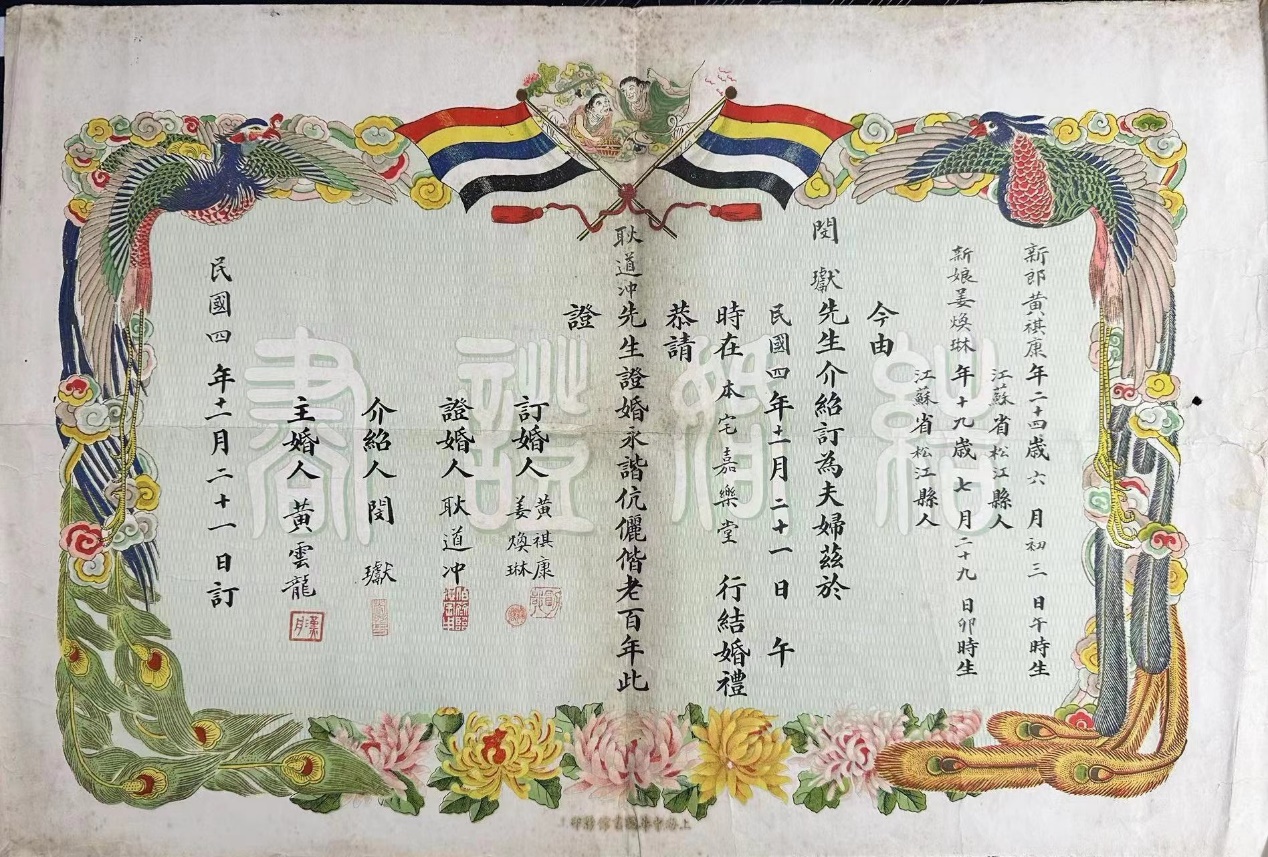 新郎黃祺康年二十四歲六月初三日午時生
江蘇省松江縣人
新娘姜煥琳年十九歲七月二十九日卯時生
江蘇省松江縣人
今由
閔瓛先生介紹訂為夫婦茲於
民國四年十二月二十一日午
時在本宅嘉樂堂行結婚禮
恭請
耿道冲先生證婚永諧伉儷偕老百年此
證
訂婚人黃祺康
姜煥琳
證婚人耿道冲
介紹人閔瓛
主婚人黃雲龍
漢月
民國四年十二月二十一日訂
結婚證書